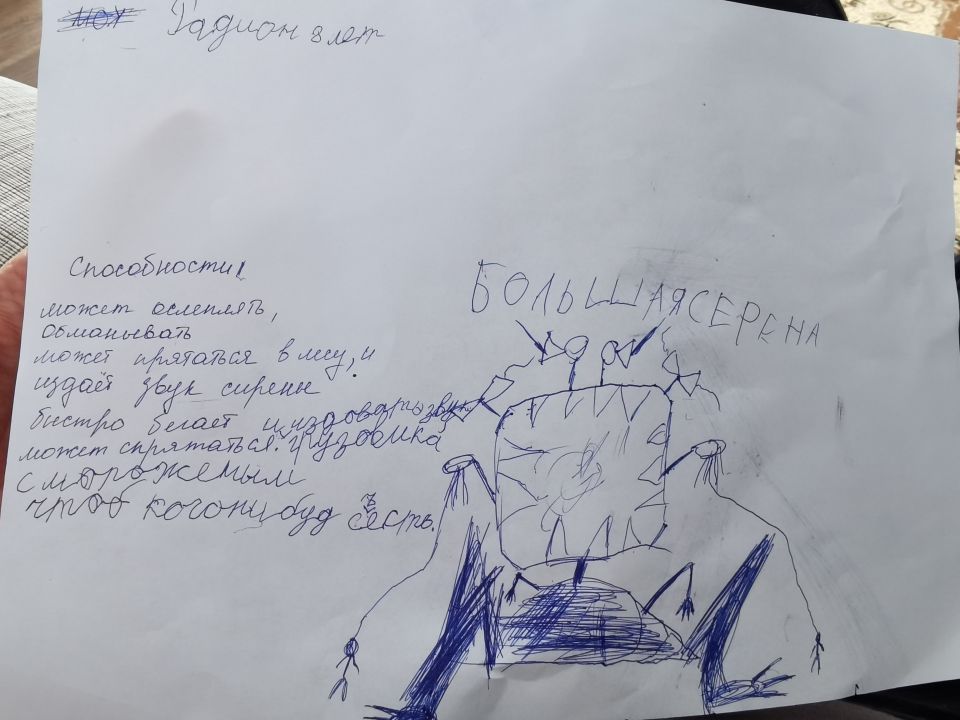 Радион 8 лет
Способности:
может ослеплять,
обманывать
может прятаться в лесу, и
издаёт звук сирены
быстро бегает и издавать звук
может спрятаться в грузовика
с мороженым
чтоб когонибуд съесть.
БОЛЬШАЯ СЕРЕНА